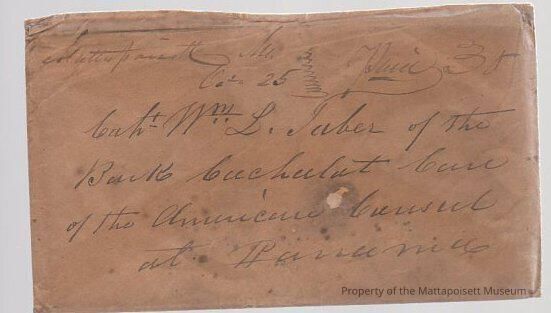 Mattapoisett Ms. Paid 3
Oct 25
Capt Wm L. Taber of the
Bark Cachalat Care
of the American Consul
at Panama
Property of the Mattapoisett Museum